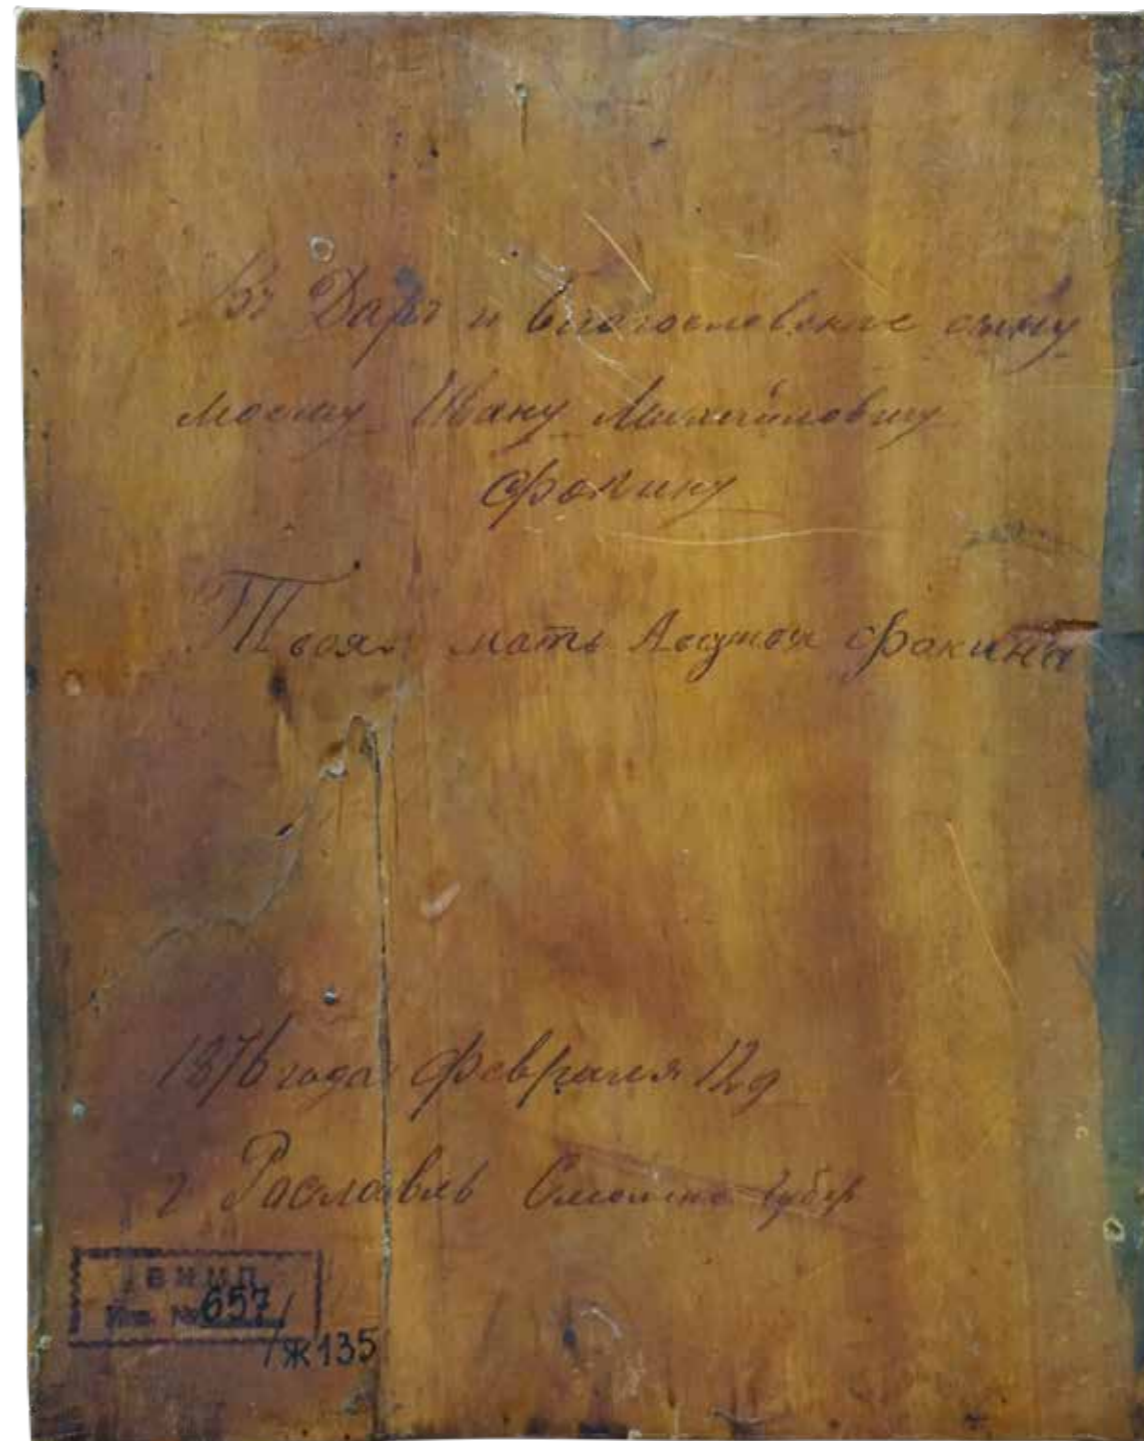 Въ Даръ и благословение сыну
моему Ивану Михайловичу
Фокину
Твоя мать Фокина
1876 года февраля 12 д
г Раславль Смоленс губер
ВНИП
Инв. № 657/
/Ж135